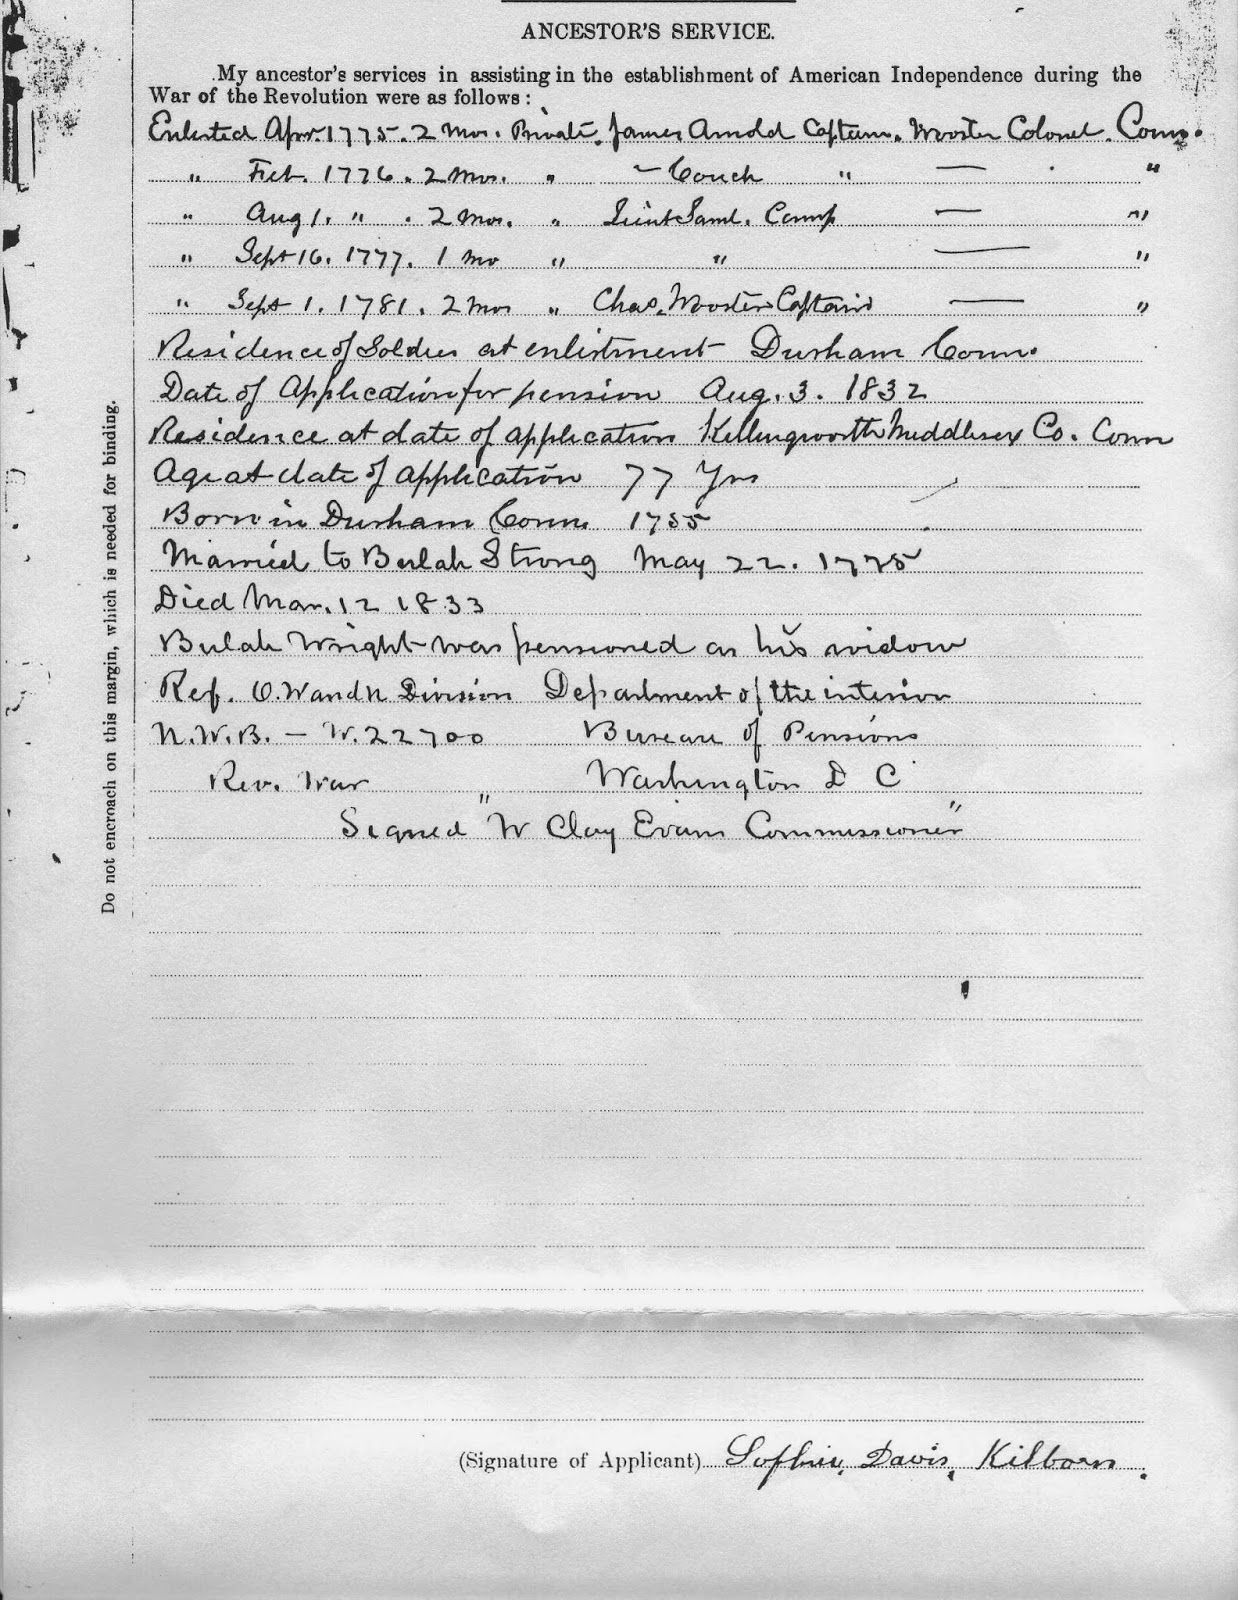 ANCESTOR'S SERVICE.
My ancestor's services in assisting in the establishment of American Independence during the
War of the Revolution were as follows :
Enlisted Apr. 1775. 2 Mos. Private. James Arnold Captain. Wooster Colonel. Conn.
" Feb. 1776. 2 Mos. " — Couch " — "
" Aug 1. " . 2 Mos. " Lieut Saml. Camp — "
" Sept 16. 1777. 1 Mo " " — "
" Sept 1. 1781. 2 Mos " Chas. Wooster Captain — "
Residence of Soldier at enlistment Durham Conn.
Date of Application for pension Aug. 3. 1832
Residence at date of application Killingworth Middlesex Co. Conn
Age at date of application 77 Yrs
Born in Durham Conn. 1755
Married to Bulah Strong May 22. 1775
Died Mar. 12 1833
Bulah Wright was pensioned as his widow
Ref. O. W and N Division Department of the interior
N. W. B. — W. 22700 Bureau of Pensions
Rev. War Washington D C
Signed "W Clay Evans Commissioner"
Do not encroach on this margin, which is needed for binding.
(Signature of Applicant) Sophie Davis Kilborn.